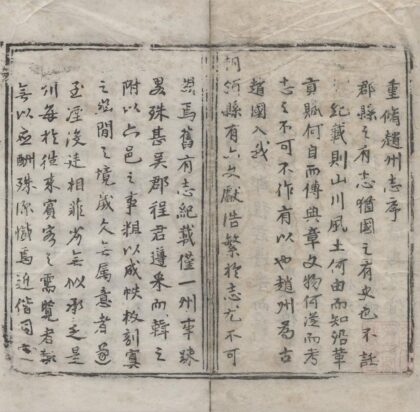 重脩趙州志序
郡縣之有志猶國之有史也不註
紀載則山川風土何由而知沿革
貢賦何自而傳典章文物何從而考
志之不可不作有以也趙州為古
趙國入我
朝領縣有六文獻浩繁於志尤不可
無焉舊有志紀載僅一州事踈
畧殊甚吳郡程君遵采而輯之
附以六邑之事粗以成帙板刻寘
之間之境歲久無属意者遂
至湮没徒相菲劣無似承乏是
州每於往來賓客之需覽者輒
無以應酬殊深慨焉近偕司